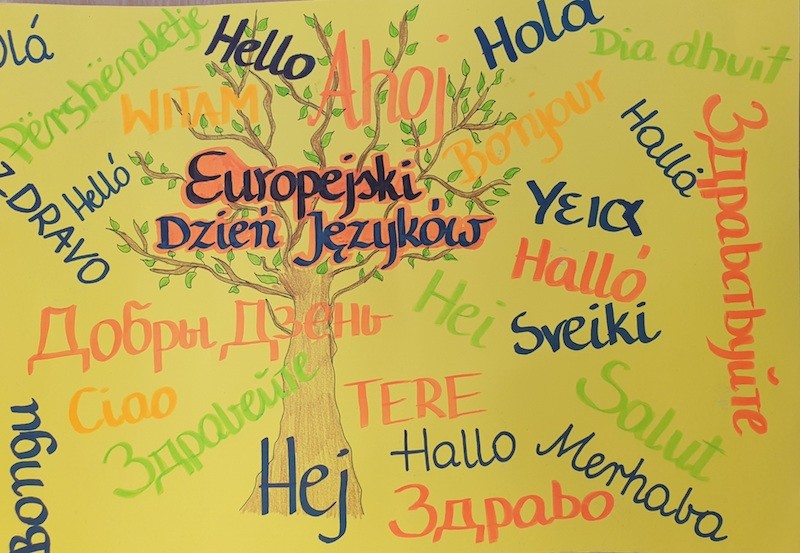 Olá
Përshëndetje
Hello
Ahoj
Hola
Dia dhuit
WITAM
Bonjour
Hallå
Здравствуйте
ZDRAVO
Helló
Europejski
Dzień Języków
Υεια
Halló
Добры Дзень
Hei
Sveiki
Ciao
Здравейте
TERE
Salut
Bongu
Hej
Hallo
Merhaba
Здраво